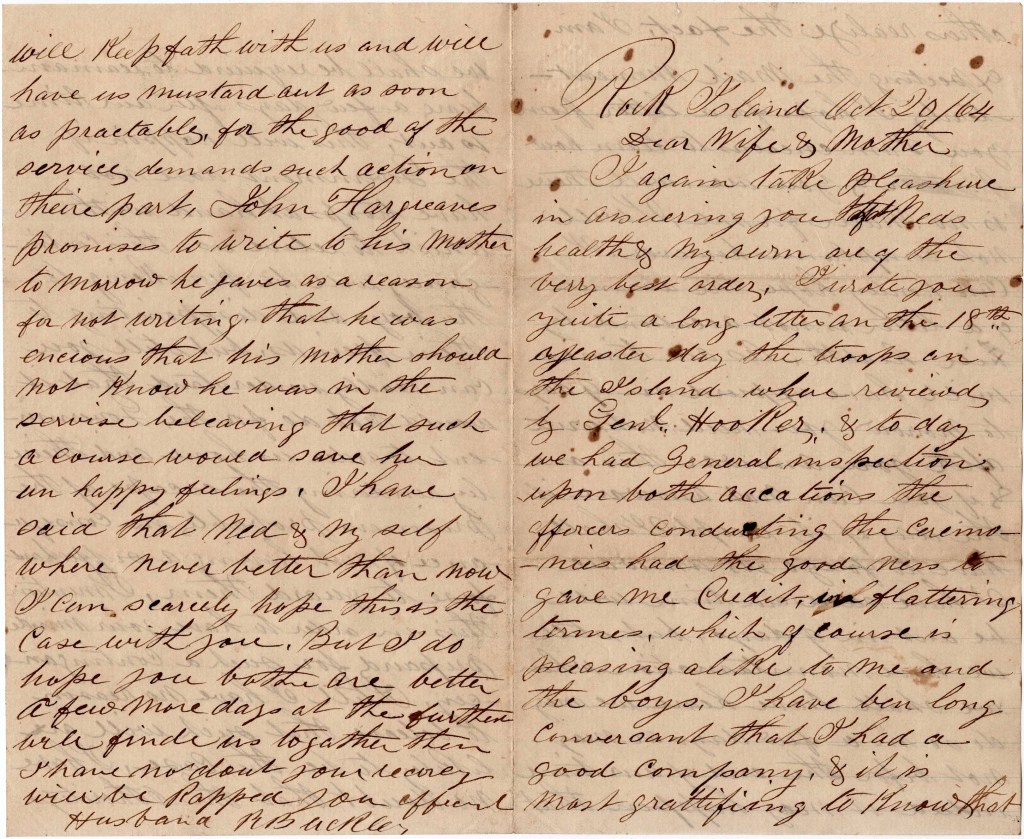 Rock Island Oct 20/64
Dear Wife & Mother
I again take pleashure
in answering you that Neds
health & my own are of the
verry best order, I wrote you
quite a long letter on the 18th
yeaster day the troops on
the Island where reviewd
by Genl. Hooker, & to day
we had General inspection
upon both accations the
officers conducting the ceremo-
-nies had the good ness to
gave me Credit, in flattering
termes, which of course is
pleasing alike to me and
the boys, I have ben long
conversant that I had a
good company, & it is
most grattifiing to know that
will Keep fath with us and will
have us mustard out as soon
as practable, for the good of the
service, demands such action on
theire part, John Hargreaves
promises to write to his Mother
to morrow he gaves as a reason
for not writing, that he was
encious that his mother should
not Know he was in the
servise beleaving that such
a course would save her
un happy feelings. I have
said that Ned & my self
where never better than now
I can scarcely hope this is the
case with you. But I do
hope you bothe are better
a few more days at the furthere
will finde us togather then
I have no dout your recovery
will be Rapped your affecnt
Husband R Buckley